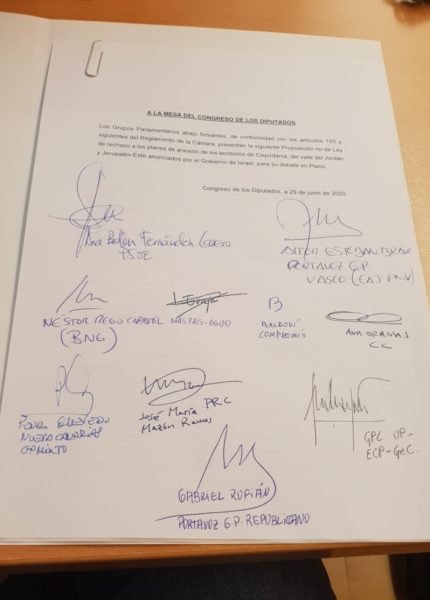 A LA MESA DEL CONGRESO DE LOS DIPUTADOS
Los Grupos Parlamentarios abajo firmantes, de conformidad con los artículos 193 y
siguientes del Reglamento de la Cámara, presentan la siguiente Proposición no de Ley
de rechazo a los planes de anexión de los territorios de Cisjordania, del valle del Jordán
y Jerusalén Este anunciados por el Gobierno de Israel, para su debate en Pleno.
Congreso de los Diputados, a 29 de junio de 2020.
Ana Belén Fernández
PSOE
AITOR ESTEBAN BRAVO
PORTAVOZ G.P.
VASCO (EAJ-PNV)
NÉSTOR REGO
(BNG)
MÁS PAÍS-EQUO
BALDOVÍ
COMPROMÍS
ANA ORAMAS
CC
PEDRO QUEVEDO
NUEVA CANARIAS
G. MIXTO
José María PRC
Mazón Ramos
GPC UP-
ECP-GeC.
GABRIEL RUFIÁN
PORTAVOZ G.P. REPUBLICANO